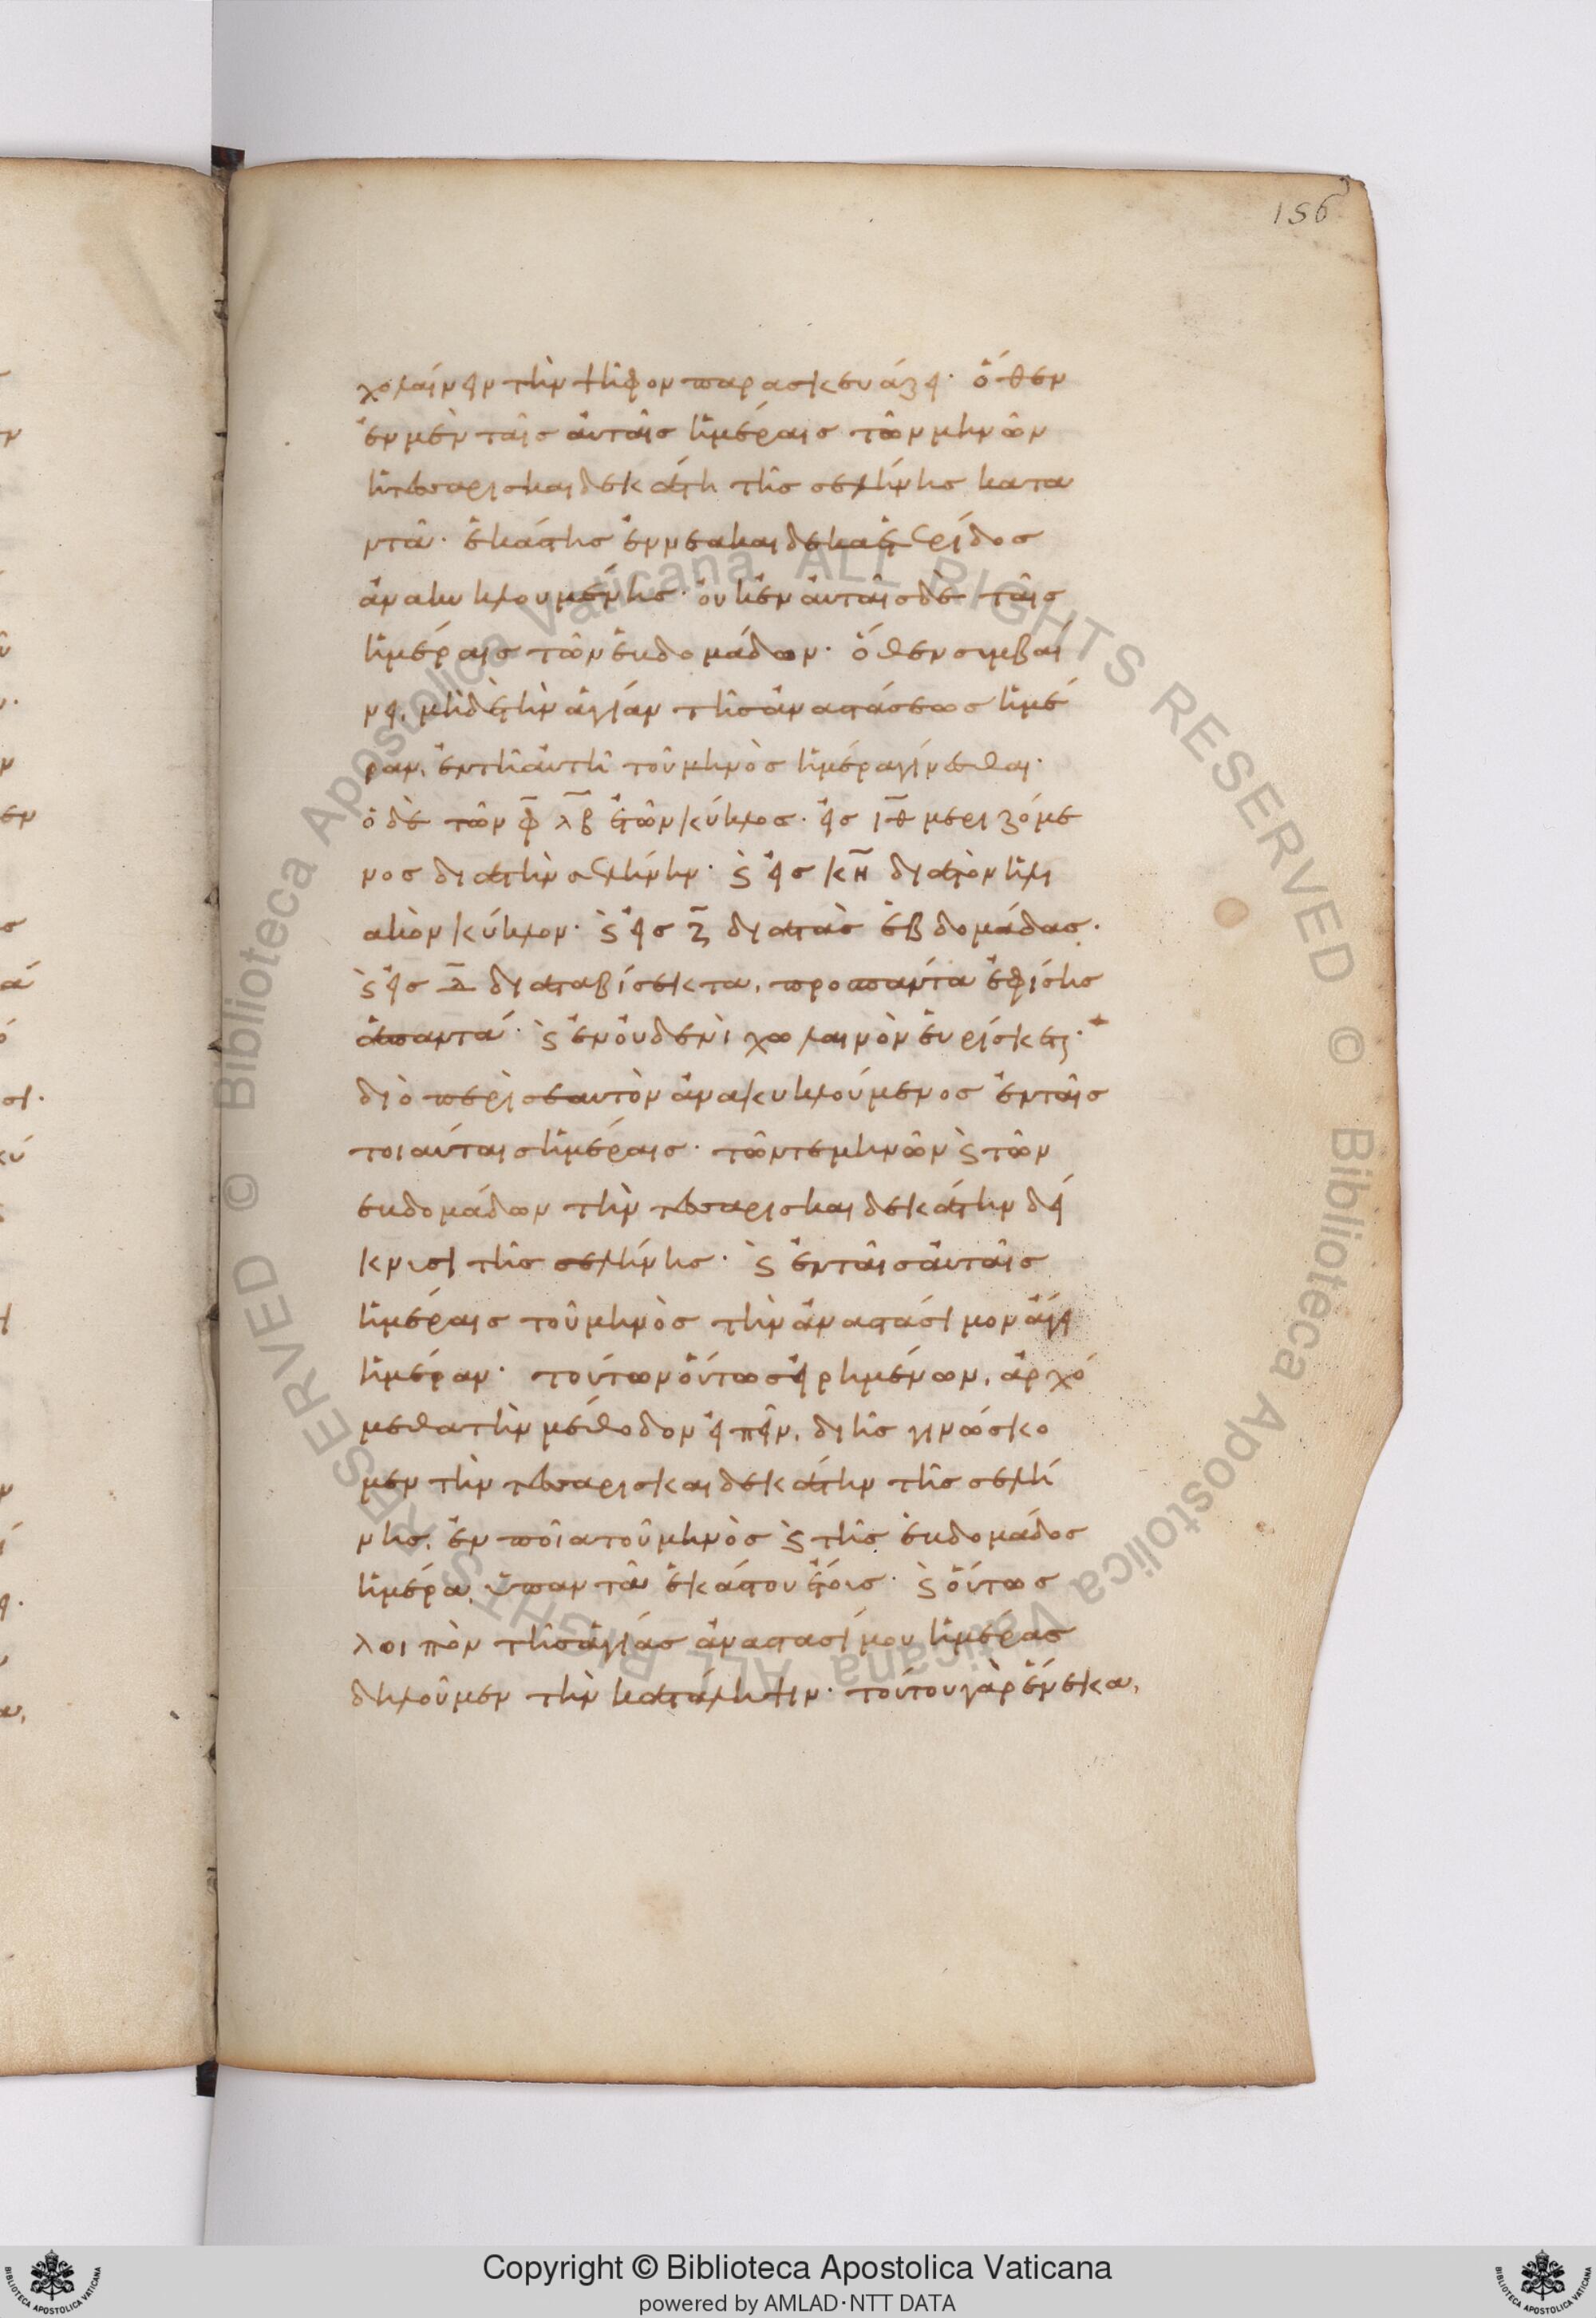 156
χολαίνειν τὴν ψῆφον παρασκευάζει· ὅθεν
ἐν μὲν ταῖς αὐταῖς ἡμέραις τῶν μηνῶν
ἡ τεσσαρισκαιδεκάτη τῆς σελήνης κατα
ντᾶ· ἑκάστης ἐννεακαιδεκαετηρίδος
ἀνακυκλουμένης· οὐκ ἐν αὐταῖς δὲ ταῖς
ἡμέραις τῶν ἑβδομάδων· ὅθεν συμβαί
νει, μηδὲ τὴν ἁγίαν τῆς ἀναστάσεως ἡμέ
ραν, ἐν τῆ αὐτῆ τοῦ μηνὸς ἡμέρα γίνεσθαι·
ὁ δὲ τῶν φ̅ λ̅β ἐτῶν κύκλος· εἰς ι̅θ μεριζόμε
νος διὰ τὴν σελήνην· ϗ εἰς κ̅η διὰ τὸν ἡλι
ακὸν κύκλον· ϗ εἰς ζ̅ διὰ τὰς ἑβδομάδας·
ϗ εἰς δ̅ διὰ τὰ βίσεκτα, προπάντα ἐφίσης
ἀπαντᾶ· ϗ ἐν οὐδενὶ χωλαινὸν εὑρίσκεται·
διὸ περὶ ἑαυτὸν ἀνακυκλούμενος ἐν ταῖς
τοιαύταις ἡμέραις· τῶν τε μηνῶν ϗ τῶν
ἑβδομάδων τὴν τεσσαρισκαιδεκάτην δεί
κνυσι τῆς σελήνης· ϗ ἐν ταῖς αὐταῖς
ἡμέραις τοῦ μηνὸς τὴν ἀναστάσιμον ἄγει
ἡμέραν· τούτων οὕτως εἰρημένων, ἀρχό
μεθα τὴν μέθοδον εἰπεῖν, δι ῆς γινώσκο
μεν τὴν τεσσαρισκαιδεκάτην τῆς σελή
νης, ἐν ποία τοῦ μηνὸς ϗ τῆς ἑβδομάδος
ἡμέρα, ὑπαντᾶ ἑκάστου ἔτους· ϗ οὕτως
λοιπὸν τῆς ἁγίας ἀναστασίμου ἡμέρας
δηλοῦμεν τὴν κατάληψιν· τούτου γὰρ ἕνεκα,
Copyright © Biblioteca Apostolica Vaticana
powered by AMLAD·NTT DATA